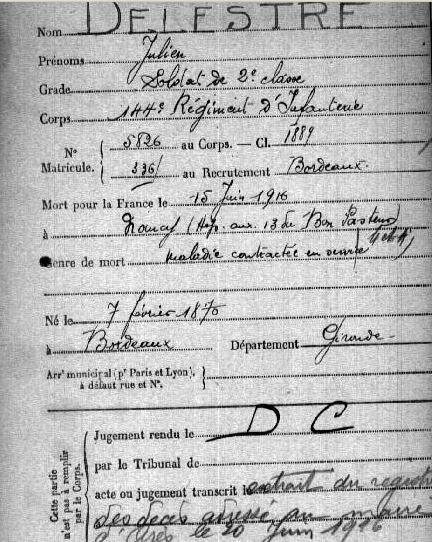 Nom DELESTRE
Prénoms Julien
Grade Soldat de 2e classe
Corps 144e Régiment d'Infanterie
N° Matricule. { 5826 au Corps. — Cl. 1889
336 au Recrutement Bordeaux.
Mort pour la France le 15 Juin 1916
à Nancy (Hôp. aux. 13 du Bon Pasteur)
Genre de mort maladie contractée en service
Né le 7 février 1870
à Bordeaux Département Gironde
Arr^t municipal (p^r Paris et Lyon), à défaut rue et N°. }
Cette partie n'est pas à remplir par le Corps.
Jugement rendu le D C
par le Tribunal de
acte ou jugement transcrit le extrait du registre
des décès adressé au maire
d'Arès le 20 Juin 1916